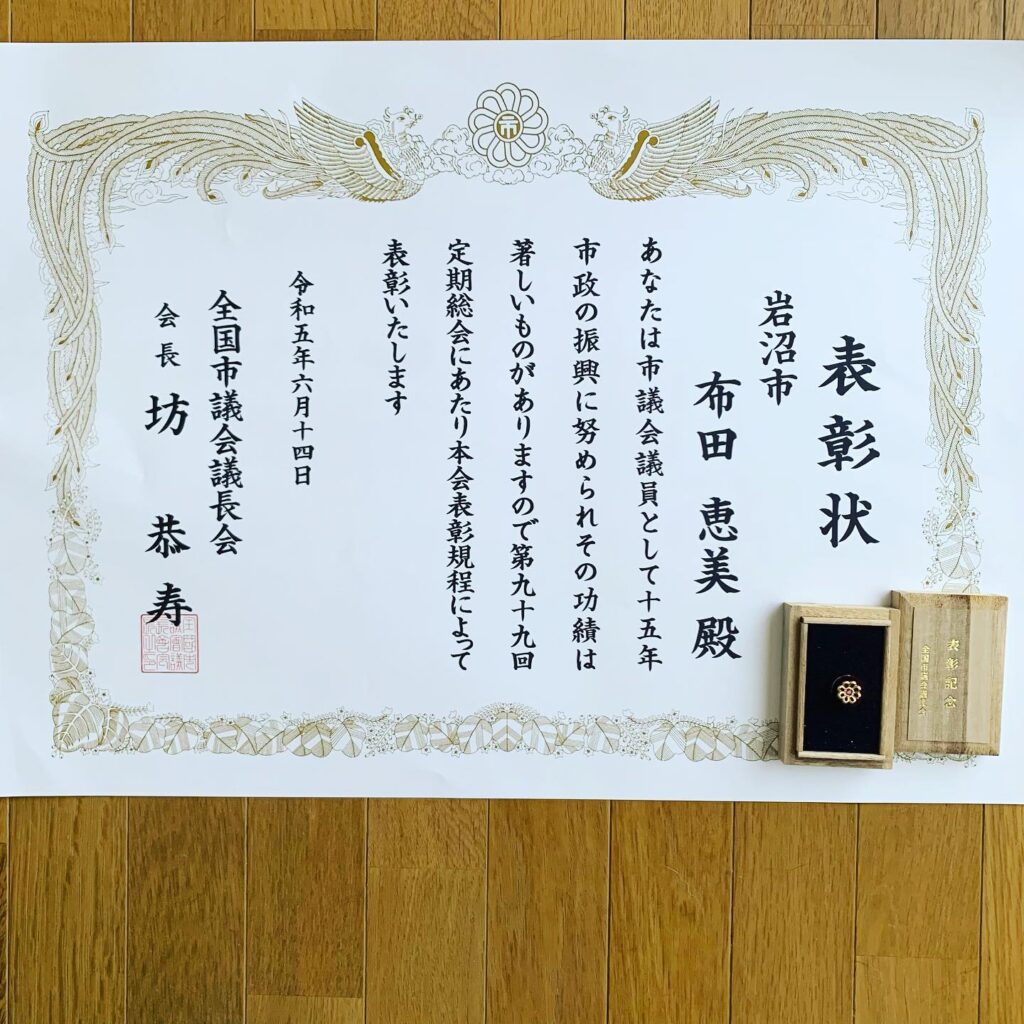 表彰状
岩沼市
布田 恵美 殿
あなたは市議会議員として十五年
市政の振興に努められその功績は
著しいものがありますので第九十九回
定期総会にあたり本会表彰規程によって
表彰いたします
令和五年六月十四日
全国市議会議長会
会長 坊 恭寿
市
表彰記念
全国市議会議長会